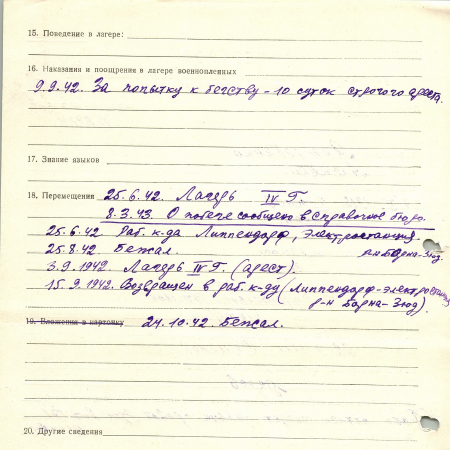 15. Поведение в лагере:
16. Наказания и поощрения в лагере военнопленных
9.9.42. За попытку к бегству – 10 суток строгого ареста.
17. Знание языков
18. Перемещения 25.6.42. Лагерь IV Г.
8.3.43. О побеге сообщено в справочное бюро.
25.6.42 Раб. к-да Липпендорф, электростанция.
р-н Борна-Зюд.
25.8.42 Бежал.
3.9.1942. Лагерь IV Г (арест).
15.9.1942. Возвращен в раб. к-ду (Липпендорф-электростанция
р-н Борна-Зюд).
19. Вложения в карточку 24.10.42. Бежал.
20. Другие сведения